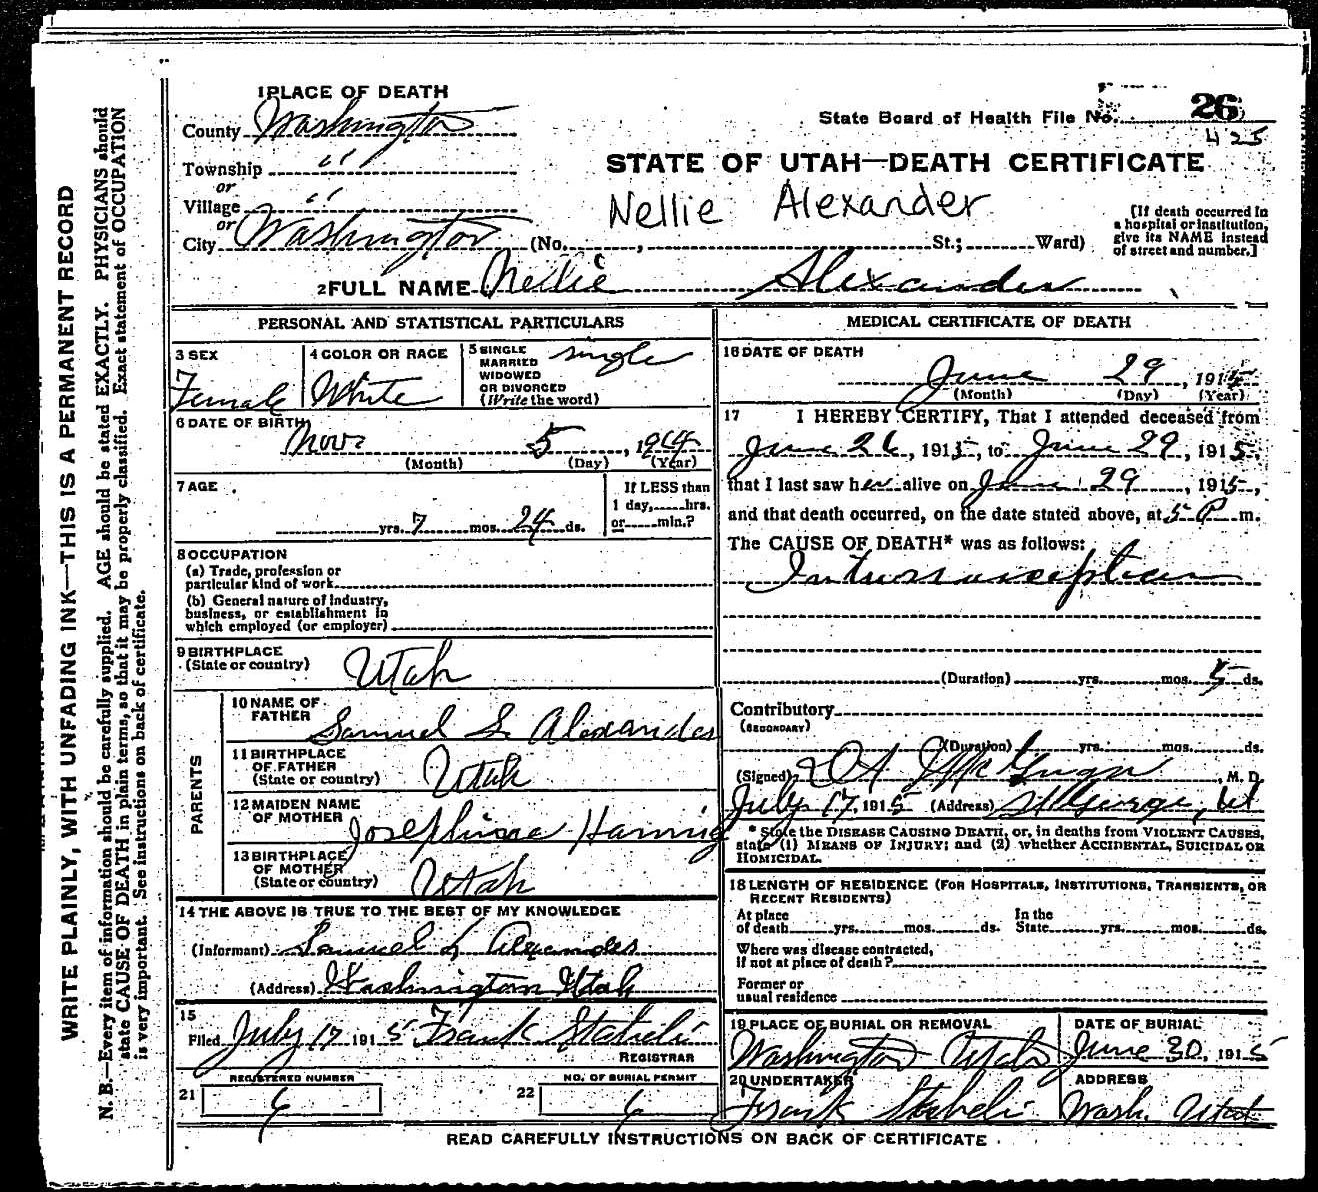 1 PLACE OF DEATH
County Washington
Township " "
or
Village " "
or
City Washington (No. , St.; Ward)
State Board of Health File No. 26
425
STATE OF UTAH—DEATH CERTIFICATE
Nellie Alexander
[If death occurred in
a hospital or institution,
give its NAME instead
of street and number.]
2 FULL NAME Nellie Alexander
PERSONAL AND STATISTICAL PARTICULARS
3 SEX
Female
4 COLOR OR RACE
White
5 SINGLE
MARRIED
WIDOWED
OR DIVORCED
(Write the word)
single
6 DATE OF BIRTH
Nov. 5, 1914
(Month) (Day) (Year)
7 AGE
yrs. 7 mos. 24 ds.
If LESS than
1 day, hrs.
or min.?
8 OCCUPATION
(a) Trade, profession or
particular kind of work
(b) General nature of industry,
business, or establishment in
which employed (or employer)
9 BIRTHPLACE
(State or country)
Utah
PARENTS
10 NAME OF
FATHER
Samuel L. Alexander
11 BIRTHPLACE
OF FATHER
(State or country)
Utah
12 MAIDEN NAME
OF MOTHER
Josephine Hannig
13 BIRTHPLACE
OF MOTHER
(State or country)
Utah
14 THE ABOVE IS TRUE TO THE BEST OF MY KNOWLEDGE
(Informant) Samuel L Alexander
(Address) Washington Utah
15
Filed July 17 1915 Frank Staheli
REGISTRAR
REGISTERED NUMBER
21 6
NO. OF BURIAL PERMIT
22 6
MEDICAL CERTIFICATE OF DEATH
16 DATE OF DEATH
June 29, 1915
(Month) (Day) (Year)
17 I HEREBY CERTIFY, That I attended deceased from
June 26, 1915, to June 29, 1915,
that I last saw her alive on June 29, 1915,
and that death occurred, on the date stated above, at 5 P m.
The CAUSE OF DEATH* was as follows:
Intussusception
(Duration) yrs. mos. 5 ds.
Contributory
(SECONDARY)
(Duration) yrs. mos. ds.
(Signed) , M. D.
July 17 1915 (Address) St George, Ut
* State the DISEASE CAUSING DEATH, or, in deaths from VIOLENT CAUSES,
state (1) MEANS OF INJURY; and (2) whether ACCIDENTAL, SUICIDAL OR
HOMICIDAL.
18 LENGTH OF RESIDENCE (FOR HOSPITALS, INSTITUTIONS, TRANSIENTS, OR
RECENT RESIDENTS)
At place
of death yrs. mos. ds.
In the
State yrs. mos. ds.
Where was disease contracted,
if not at place of death?
Former or
usual residence
19 PLACE OF BURIAL OR REMOVAL
Washington Utah
DATE OF BURIAL
June 30, 1915
20 UNDERTAKER
Frank Staheli
ADDRESS
Wash. Utah
READ CAREFULLY INSTRUCTIONS ON BACK OF CERTIFICATE
WRITE PLAINLY, WITH UNFADING INK—THIS IS A PERMANENT RECORD
N. B.—Every item of information should be carefully supplied. AGE should be stated EXACTLY. PHYSICIANS should
state CAUSE OF DEATH in plain terms, so that it may be properly classified. Exact statement of OCCUPATION
is very important. See instructions on back of certificate.